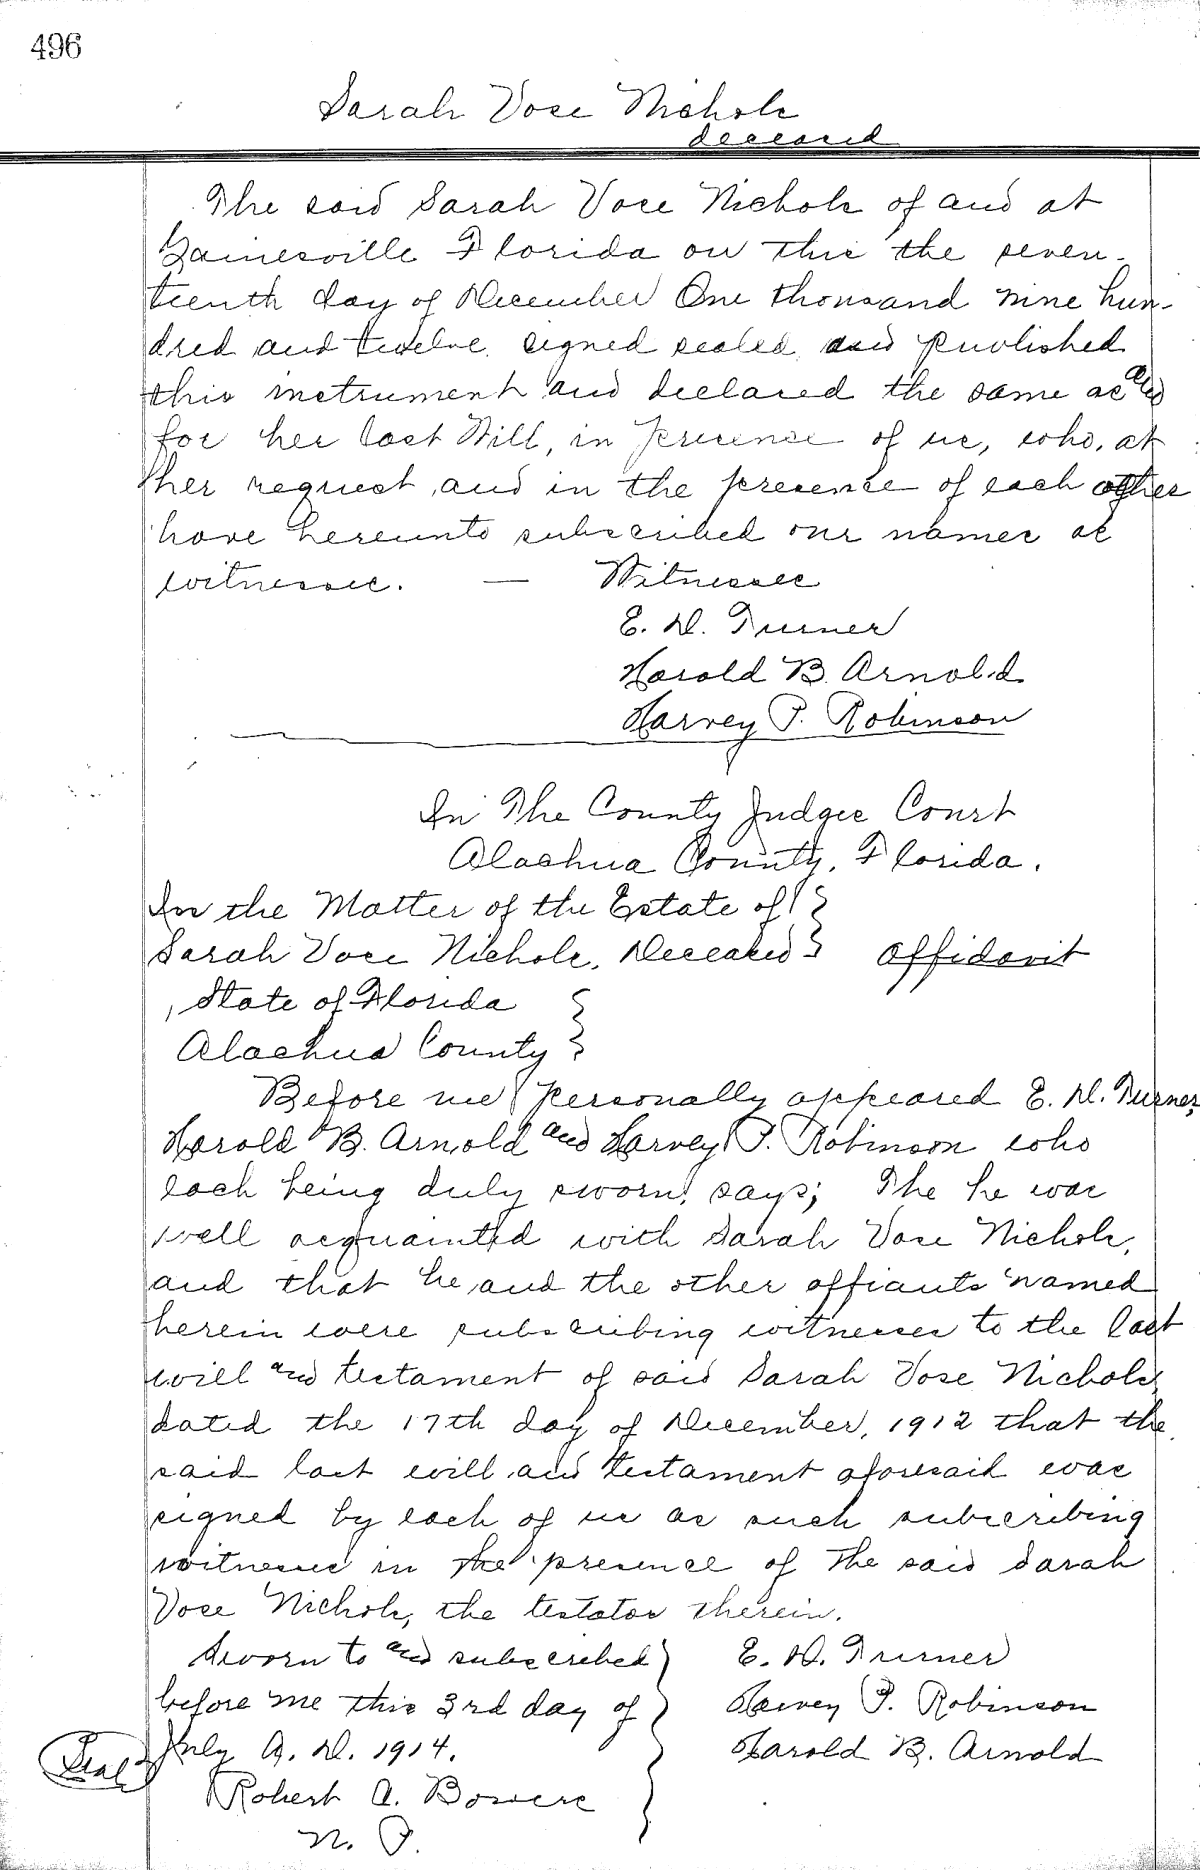 496
Sarah Vose Nichols
deceased
The said Sarah Vose Nichols of and at
Gainesville Florida on this the seven-
teenth day of December One thousand nine hun-
dred and twelve signed sealed and published
this instrument and declared the same as and
for her last Will, in presence of us, who, at
her request, and in the presence of each other
have hereunto subscribed our names as
witnesses. — Witnesses
E. D. Turner
Harold B. Arnold
Harvey P. Robinson
In The County Judges Court
Alachua County, Florida.
In the Matter of the Estate of }
Sarah Vose Nichols, Deceased } Affidavit
State of Florida }
Alachua County }
Before me personally appeared E. D. Turner,
Harold B. Arnold and Harvey P. Robinson who
each being duly sworn, says; The he was
well acquainted with Sarah Vose Nichols,
and that he and the other affiants named
herein were subscribing witnesses to the last
will and testament of said Sarah Vose Nichols,
dated the 17th day of December, 1912 that the
said last will and testament aforesaid was
signed by each of us as such subscribing
witnesses in the presence of the said Sarah
Vose Nichols, the testator therein.
Sworn to and subscribed } E. D. Turner
before me this 3rd day of } Harvey P. Robinson
Seal July A. D. 1914. } Harold B. Arnold
Robert A. Bowers
N. P.